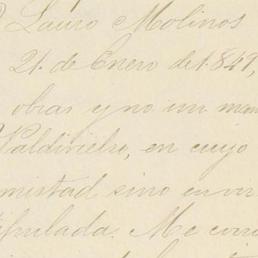 Lauro Molinos
21. de Enero de 1.849,
obras y no un man
Valdivielso, en cuyo
mistad sino en vir
tipulada. Me